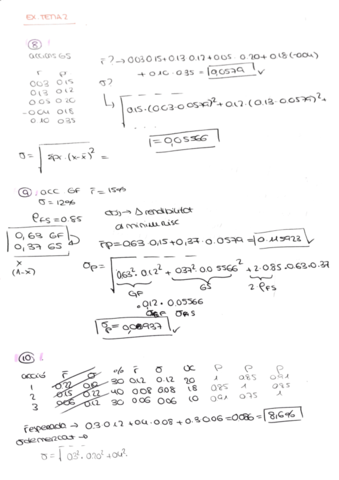 EX. TEMA 2
⑧
accions GS
r̄ p
0'03 0'15
0'13 0'12
0'05 0'20
-0'04 0'18
0'10 0'35
r̄? → 0'03·0'15+0'13·0'12+0'05·0'20+0'18·(-0'04)
+0'10·0'35 = 0'0579 ✓
σ?
↳ √0'15·(0'03-0'0579)²+0'12·(0'13-0'0579)²+
...
= 0'05566
σ = √Σpr·(x-x̄)² =
⑨ : acc GF r̄ = 15%
σ = 12%
ρFS = 0.85
0,63 GF
0,37 GS
x
(1-x)
a mínim risc
r̄p = 0'63·0'15+0'37·0'0579 = 0'115923 ✓
σp = √0'63²·0'12²+0'37²·0'05566²+2·0'85·0'63·0'37
GF GS 2 ρFS
·0'12·0'05566
σp = 0'08937 ✓
⑩
acció r̄ σ % r̄ σ UC ρ ρ ρ
1 0'22 30 0'12 0'12 20 1 0'85 0'91
2 0'15 40 0'08 0'08 18 0'85 1 0'75
3 0'06 0'12 30 0'06 0'06 10 0'91 0'75 1
r̄ esperada → 0'3·0'12+0'4·0'08+0'3·0'06 = 0'086 = 8'6% ✓
σ de mercat →